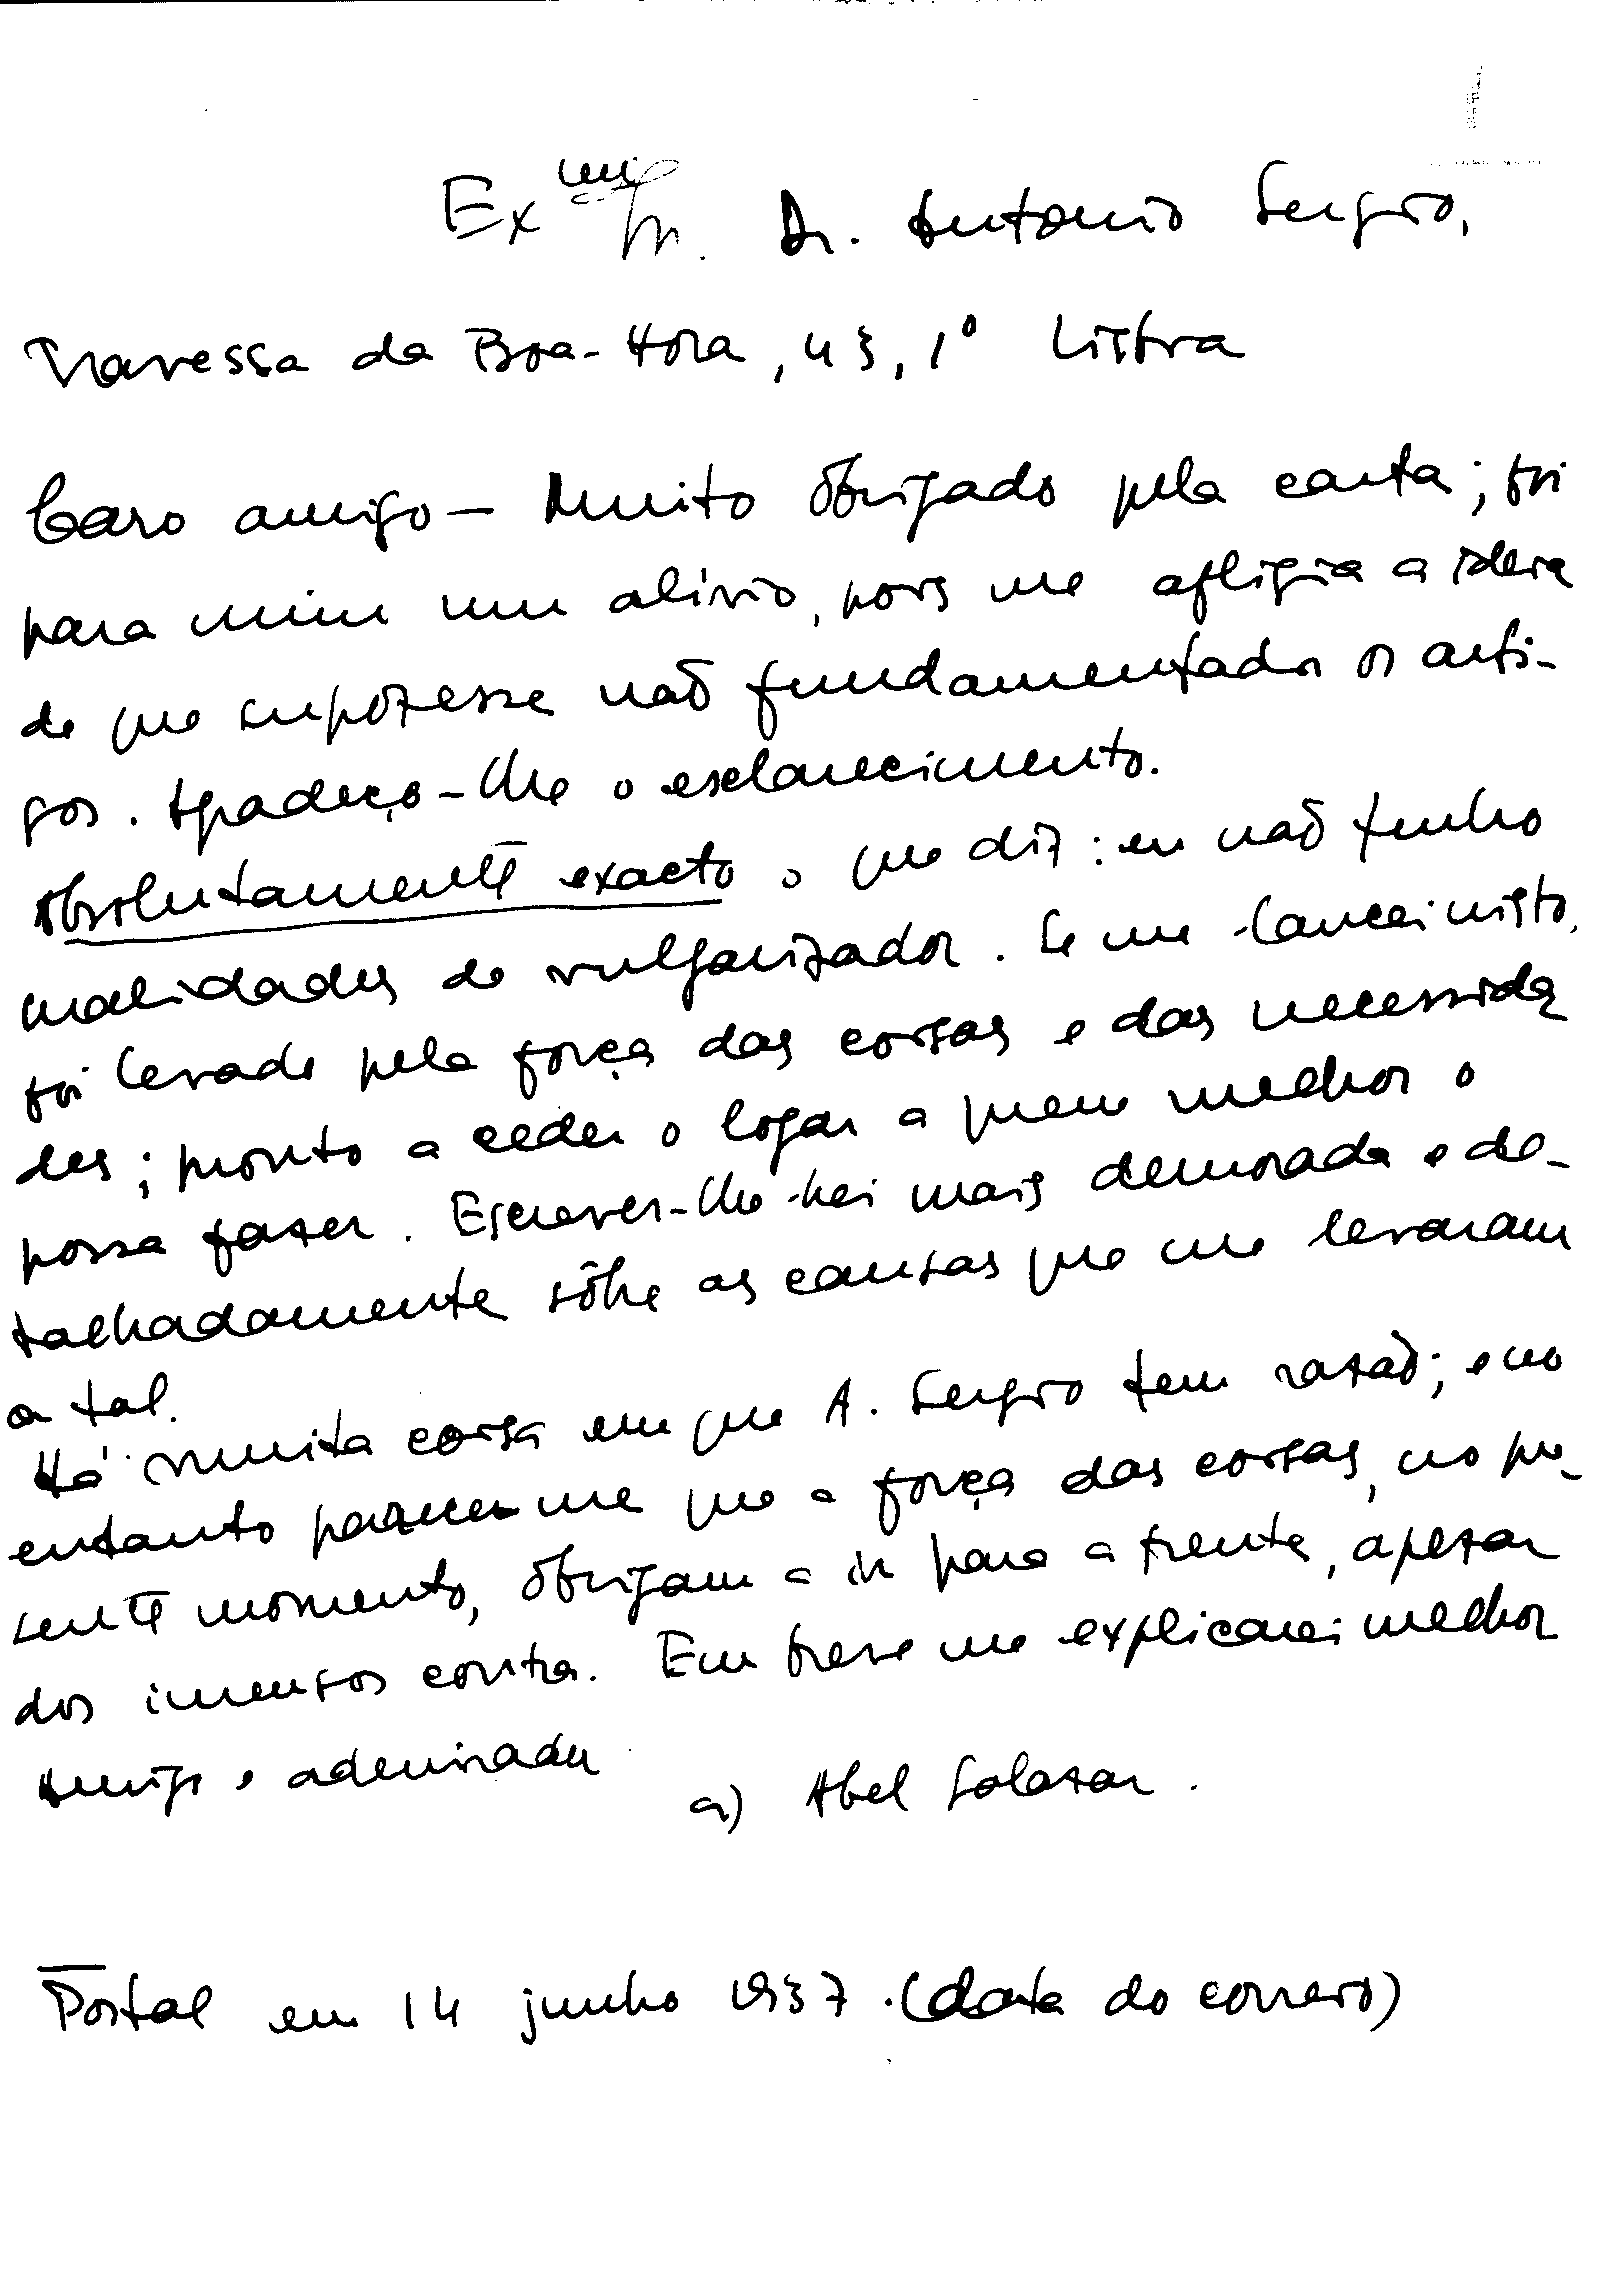 Exmº Sr. Dr. Antonio Sergio,
Travessa da Boa-Hora, 43, 1º Lisboa
Caro amigo — Muito obrigado pela carta; foi
para mim um alivio, pois me afligia a ideia
de que supozesse não fundamentados os arti-
gos. Agradeço-lhe o esclarecimento.
Absolutamente exacto o que diz: eu não tenho
qualidades de vulgarizador. Se me lancei nisto,
foi levado pela força das coisas e das necessida
des; pronto a ceder o logar a quem melhor o
possa fazer. Escrever-lhe-hei mais demorada e de-
talhadamente sôbre as causas que me levaram
a tal.
Há muita coisa em que A. Sergio tem razão; e no
entanto parece-me que a força das coisas, no pre-
sente momento, obrigam a ir para a frente, apesar
dos imensos contra. Em breve me explicarei melhor
Amigo e admirador
a) Abel Salazar.
Postal em 14 junho 1937. (data do correio)